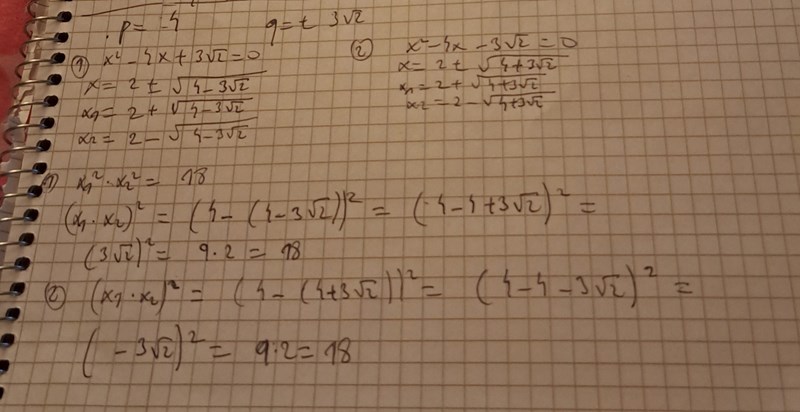 p = -4 q = ± 3√2
① x² - 4x + 3√2 = 0
x = 2 ± √(4-3√2)
x₁ = 2 + √(4-3√2)
x₂ = 2 - √(4-3√2)
② x² - 4x - 3√2 = 0
x = 2 ± √(4+3√2)
x₁ = 2 + √(4+3√2)
x₂ = 2 - √(4+3√2)
① x₁² · x₂² = 18
(x₁ · x₂)² = (4 - (4-3√2))² = (4-4+3√2)² =
(3√2)² = 9·2 = 18
② (x₁ · x₂)² = (4 - (4+3√2))² = (4-4-3√2)² =
(-3√2)² = 9·2 = 18